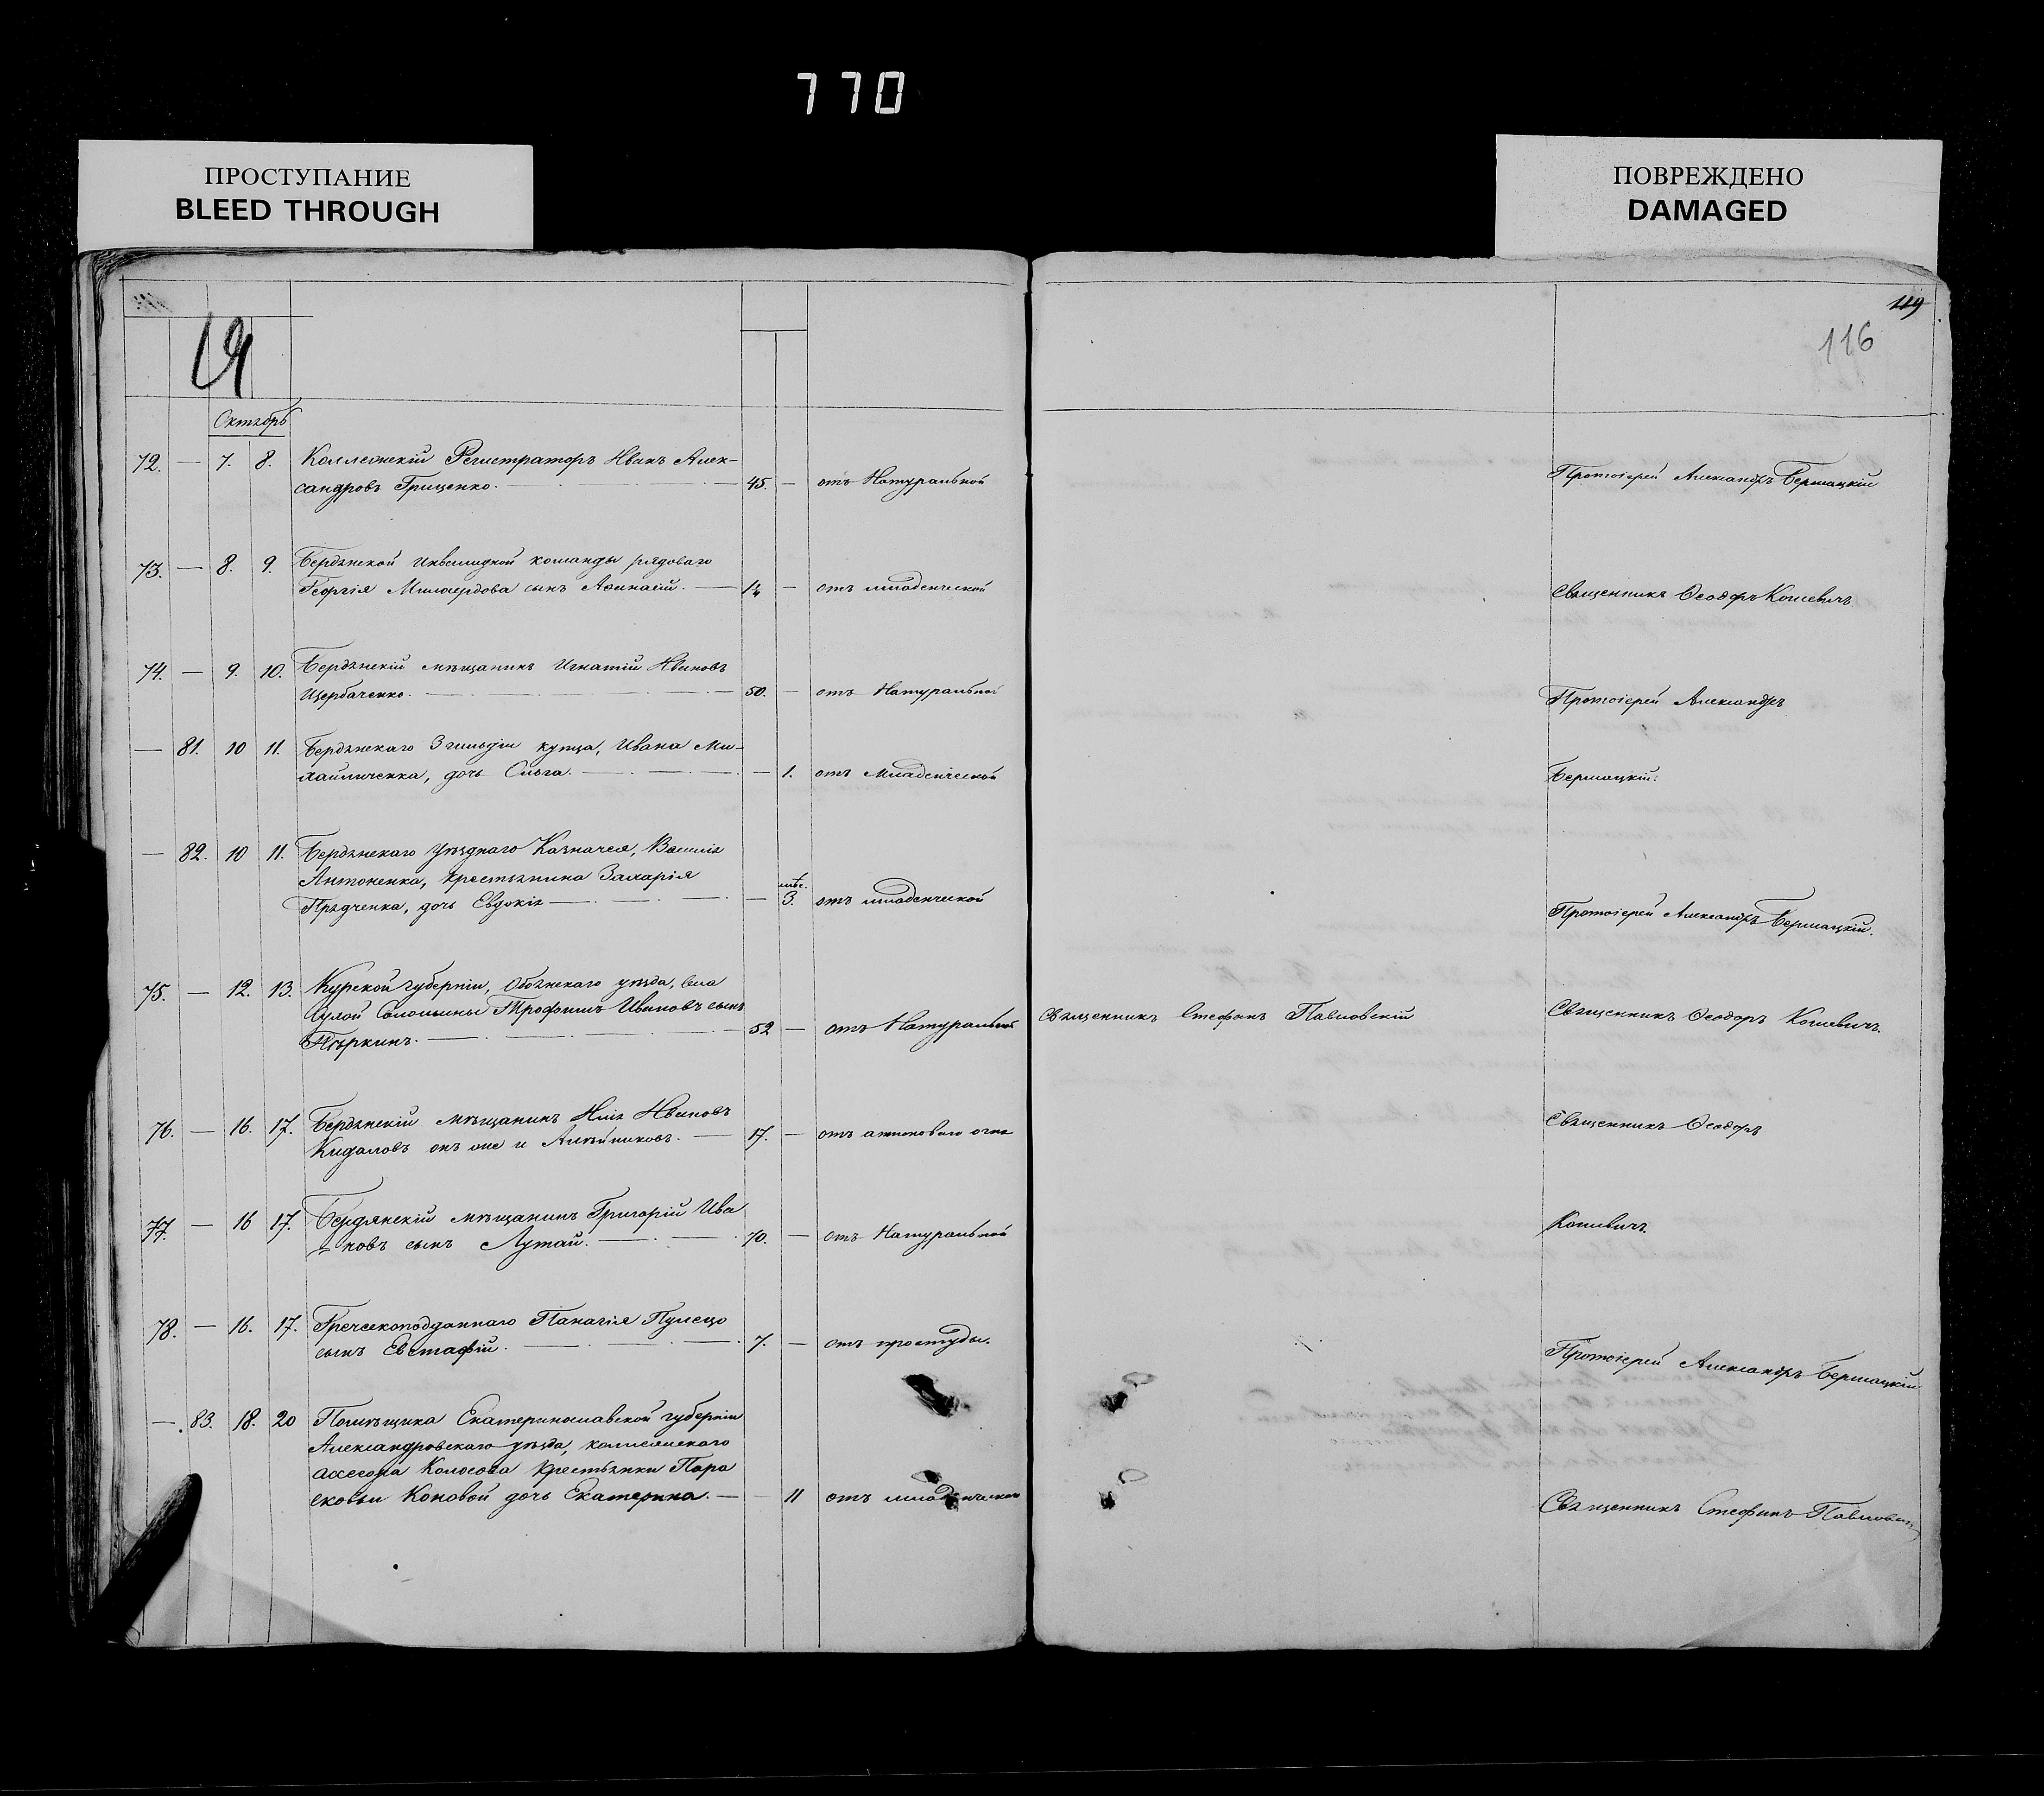 770
ПРОСТУПАНИЕ
BLEED THROUGH
ПОВРЕЖДЕНО
DAMAGED
119
116
Октябрь
72. — 7. 8. Коллежскій Регистраторъ Иванъ Алек-
сандровъ Гриценко. — 45. — отъ Натуральной
Протоіерей Александръ
73. — 8. 9. Бердянской инвалидной команды рядоваго
Георгія Милосердова сынъ Афанасій. — — отъ младенческой
Священникъ Ѳеодоръ
74. — 9. 10. Бердянскій мѣщанинъ Игнатій Ивановъ
Щербаченко. — 50. — отъ Натуральной
Протоіерей Александръ
— 81. 10 11. Бердянскаго 3 гильдіи купца, Ивана Ми-
хайличенка, дочь Ольга. — 1. отъ Младенческой
— 82. 10 11. Бердянскаго уѣзднаго Казначея, Василія
Антоненка, крестьянина Захарія
дочь Евдокія — 3. отъ младенческой
Протоіерей Александръ
75. — 12. 13. Курской губерніи, Обоянскаго уѣзда, села
Трофимъ Ивановъ сынъ
52 — отъ Натуральной
Священникъ Стефанъ Павловскій
Священникъ Ѳеодоръ
76. — 16. 17. Бердянскій мѣщанинъ Илія Ивановъ
Кидаловъ онъ же и — 17. — отъ антонового огня
Священникъ Ѳеодоръ
77. — 16 17. Бердянскій мѣщанинъ Григорій Ива
новъ сынъ Лутай. — 70. — отъ Натуральной
78. — 16. 17. Греческоподданнаго Панагія
сынъ Евстафій. — 7. — отъ простуды.
Протоіерей Александръ
— 83. 18. 20 Помѣщика Екатеринославской губерніи
Александровскаго уѣзда,
Колосова крестьянки Пара
сковьи Коновой дочь Екатерина. — 11 отъ младенческой
Священникъ Стефанъ